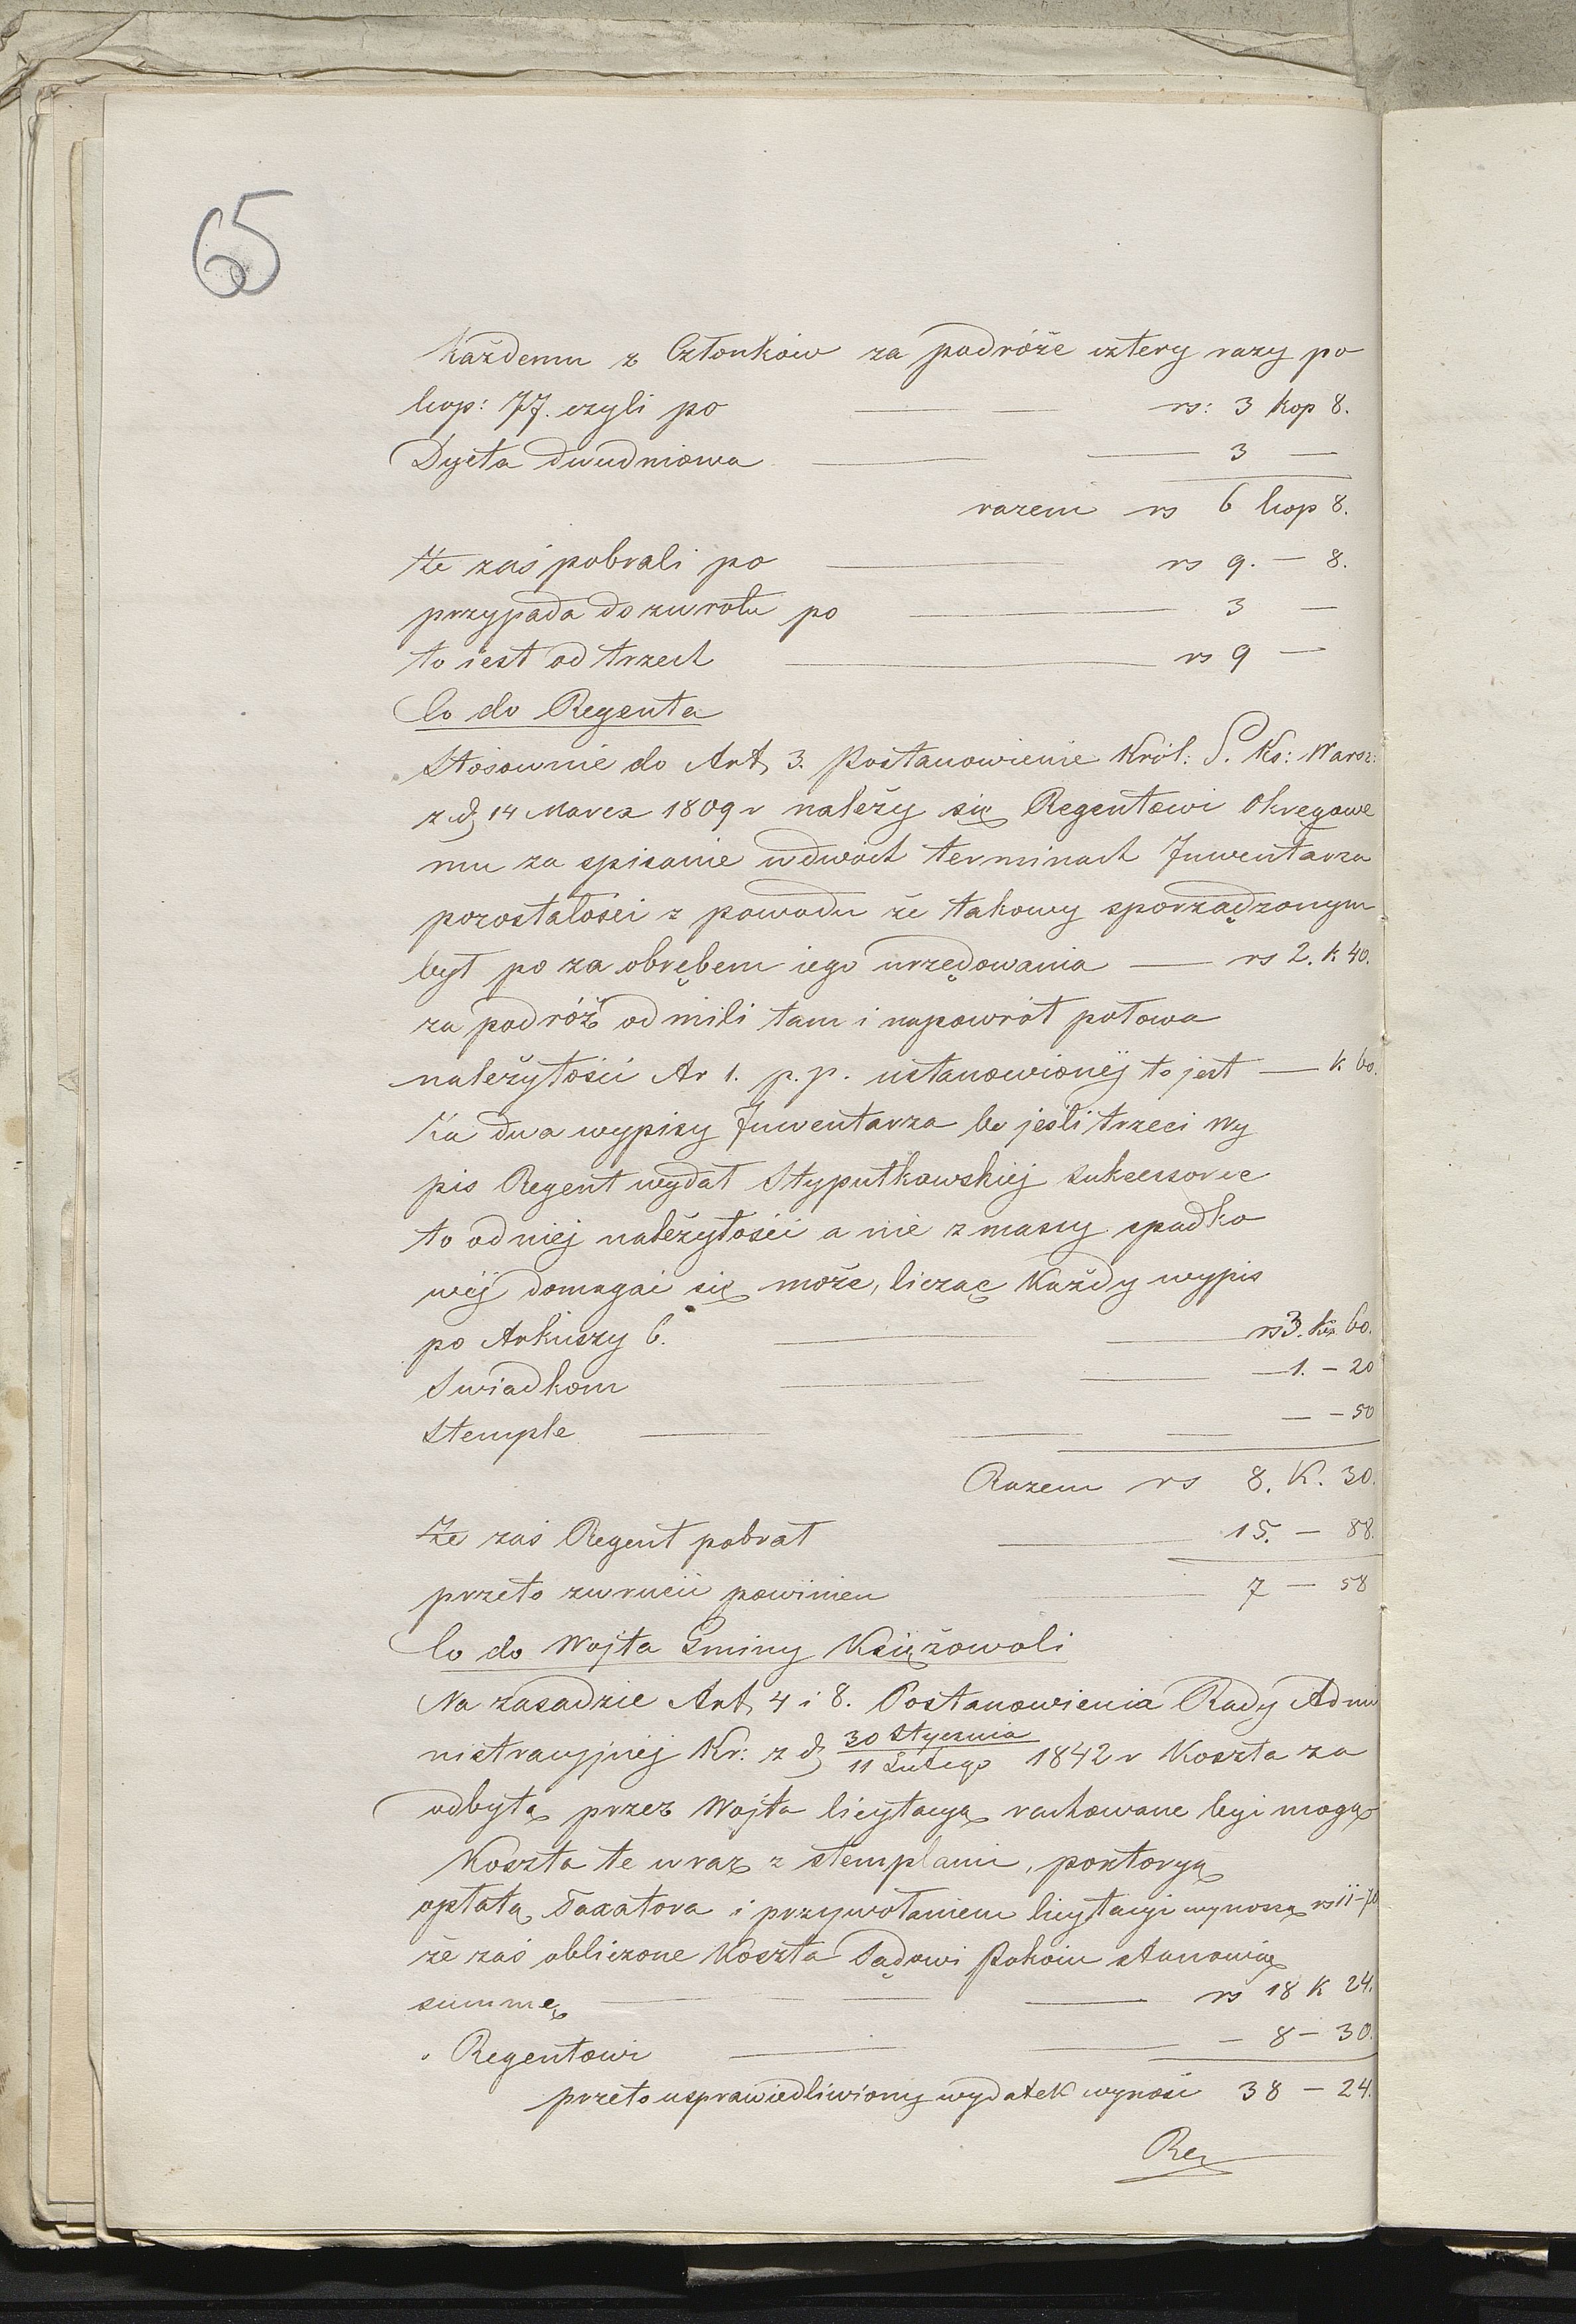 65
Każdemu z Członków za podróże cztery razy po
kop: 77. czyli po — — rs: 3 kop 8.
Dyeta dwudniowa — — 3 —
razem rs 6 kop 8.
Że zaś pobrali po — rs 9. — 8.
przypada do zwrotu po — 3 —
to iest od trzech — rs 9 —
Co do Regenta
Stósownie do Art, 3. Postanowienie Król: S. Ks: Warsz:
z d, 14 Marca 1809 r należy się Regentowi Okręgowe
mu za spisanie w dwóch terminach Inwentarza
pozostałości z powodu że takowy sporządzonym
był po za obrębem iego urzędowania — rs 2. k 40.
za podróż od mili tam i napowrót połowa
należytości Ar 1. p. p. ustanowionéj to jest — k 60.
Za dwa wypisy Inwentarza bo jeśli trzeci wy
pis Regent wydał Stypułkowskiej Sukcessorce
to od niej należytości a nie z massy spadko
wéj domagać się może, licząc Każdy wypis
po Arkuszy 6. — — rs 3. kp. 60.
Swiadkom — — 1. — 20
Stemple — — — — — 50
Razem rs 8. K. 30.
Że zaś Regent pobrał — 15. — 88.
przeto zwrócić powinien — 7 — 58
Co do Wojta Gminy Księżowoli
Na zasadzie Art, 4 i 8. Postanowienia Rady Admi
nistracyjnéj Kr: z d, 30 Stycznia / 11 Lutego 1842 r Koszta za
odbytą przez Wojta licytacyą rachowane być mogą
Koszta te wraz z stemplami, portoryą
opłatą Taxatora i przywołaniem licytacyi wynoszą rs 11–70
że zaś obliczone Koszta Sądowi Pokoiu stanowią
summę — — — — rs 18 K 24.
" Regentowi — — — 8 — 30.
przeto usprawiedliwiony wydatek wynosi 38 — 24.